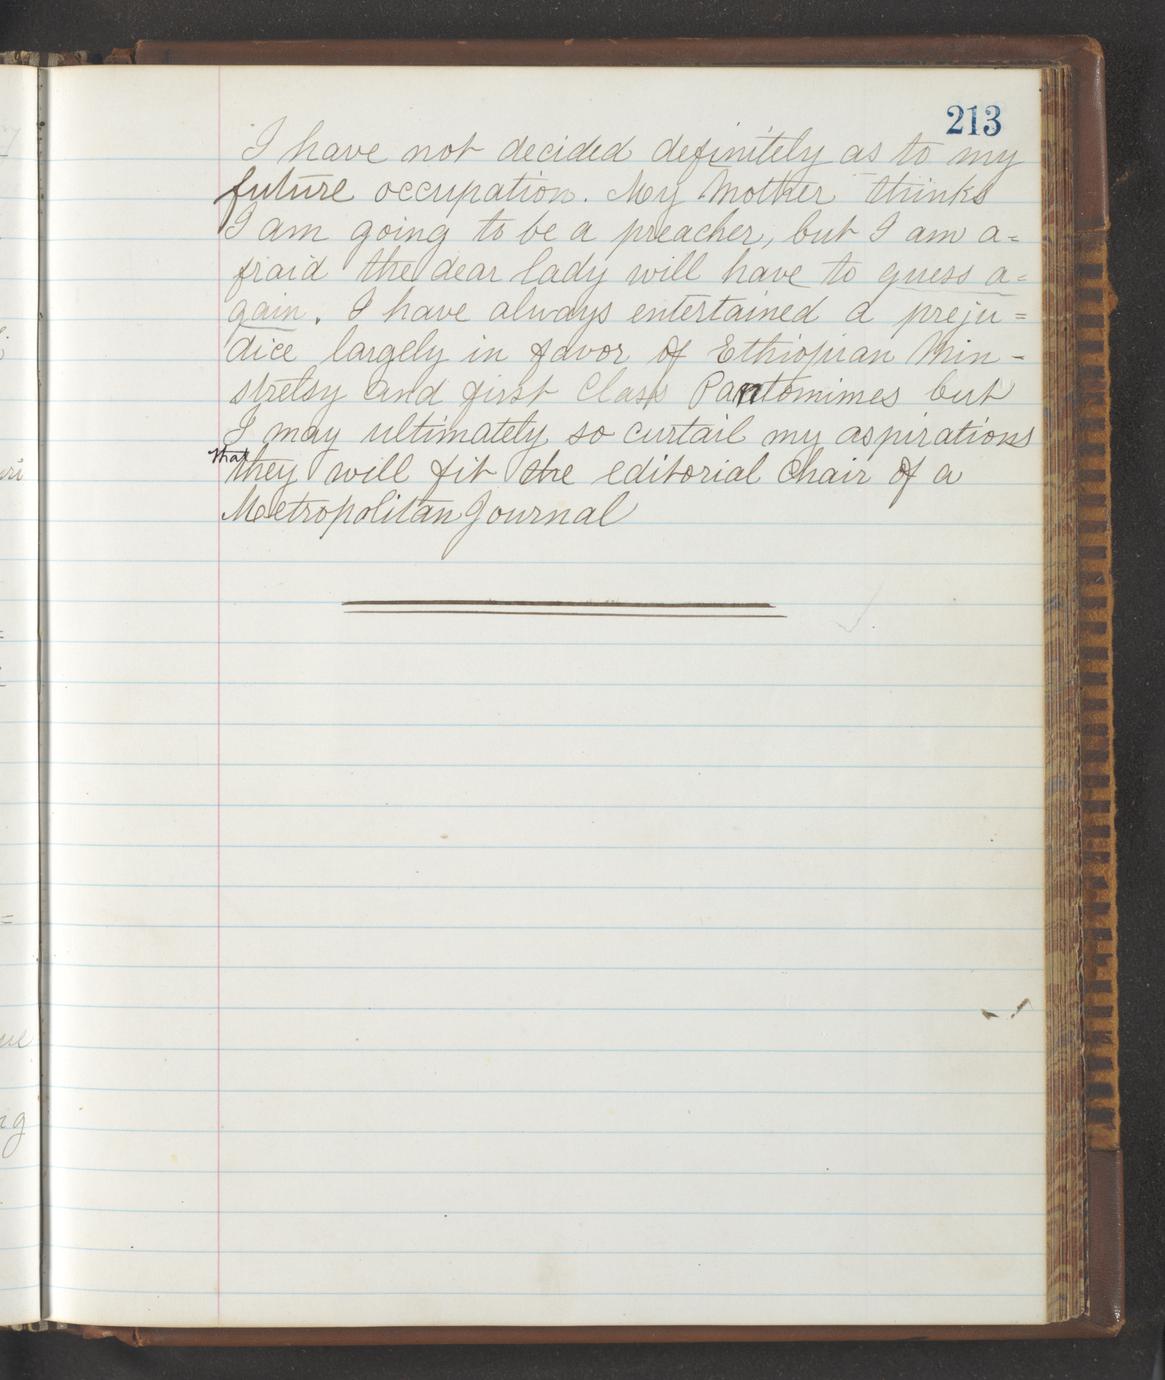 213
I have not decided definitely as to my
future occupation. My Mother thinks
I am going to be a preacher, but I am a=
fraid the dear lady will have to guess a=
gain. I have always entertained a preju=
dice largely in favor of Ethiopian Min-
stretsy and first Class Pantomimes but
I may ultimately so curtail my aspirations
that
they will fit the editorial Chair of a
Metropolitan Journal